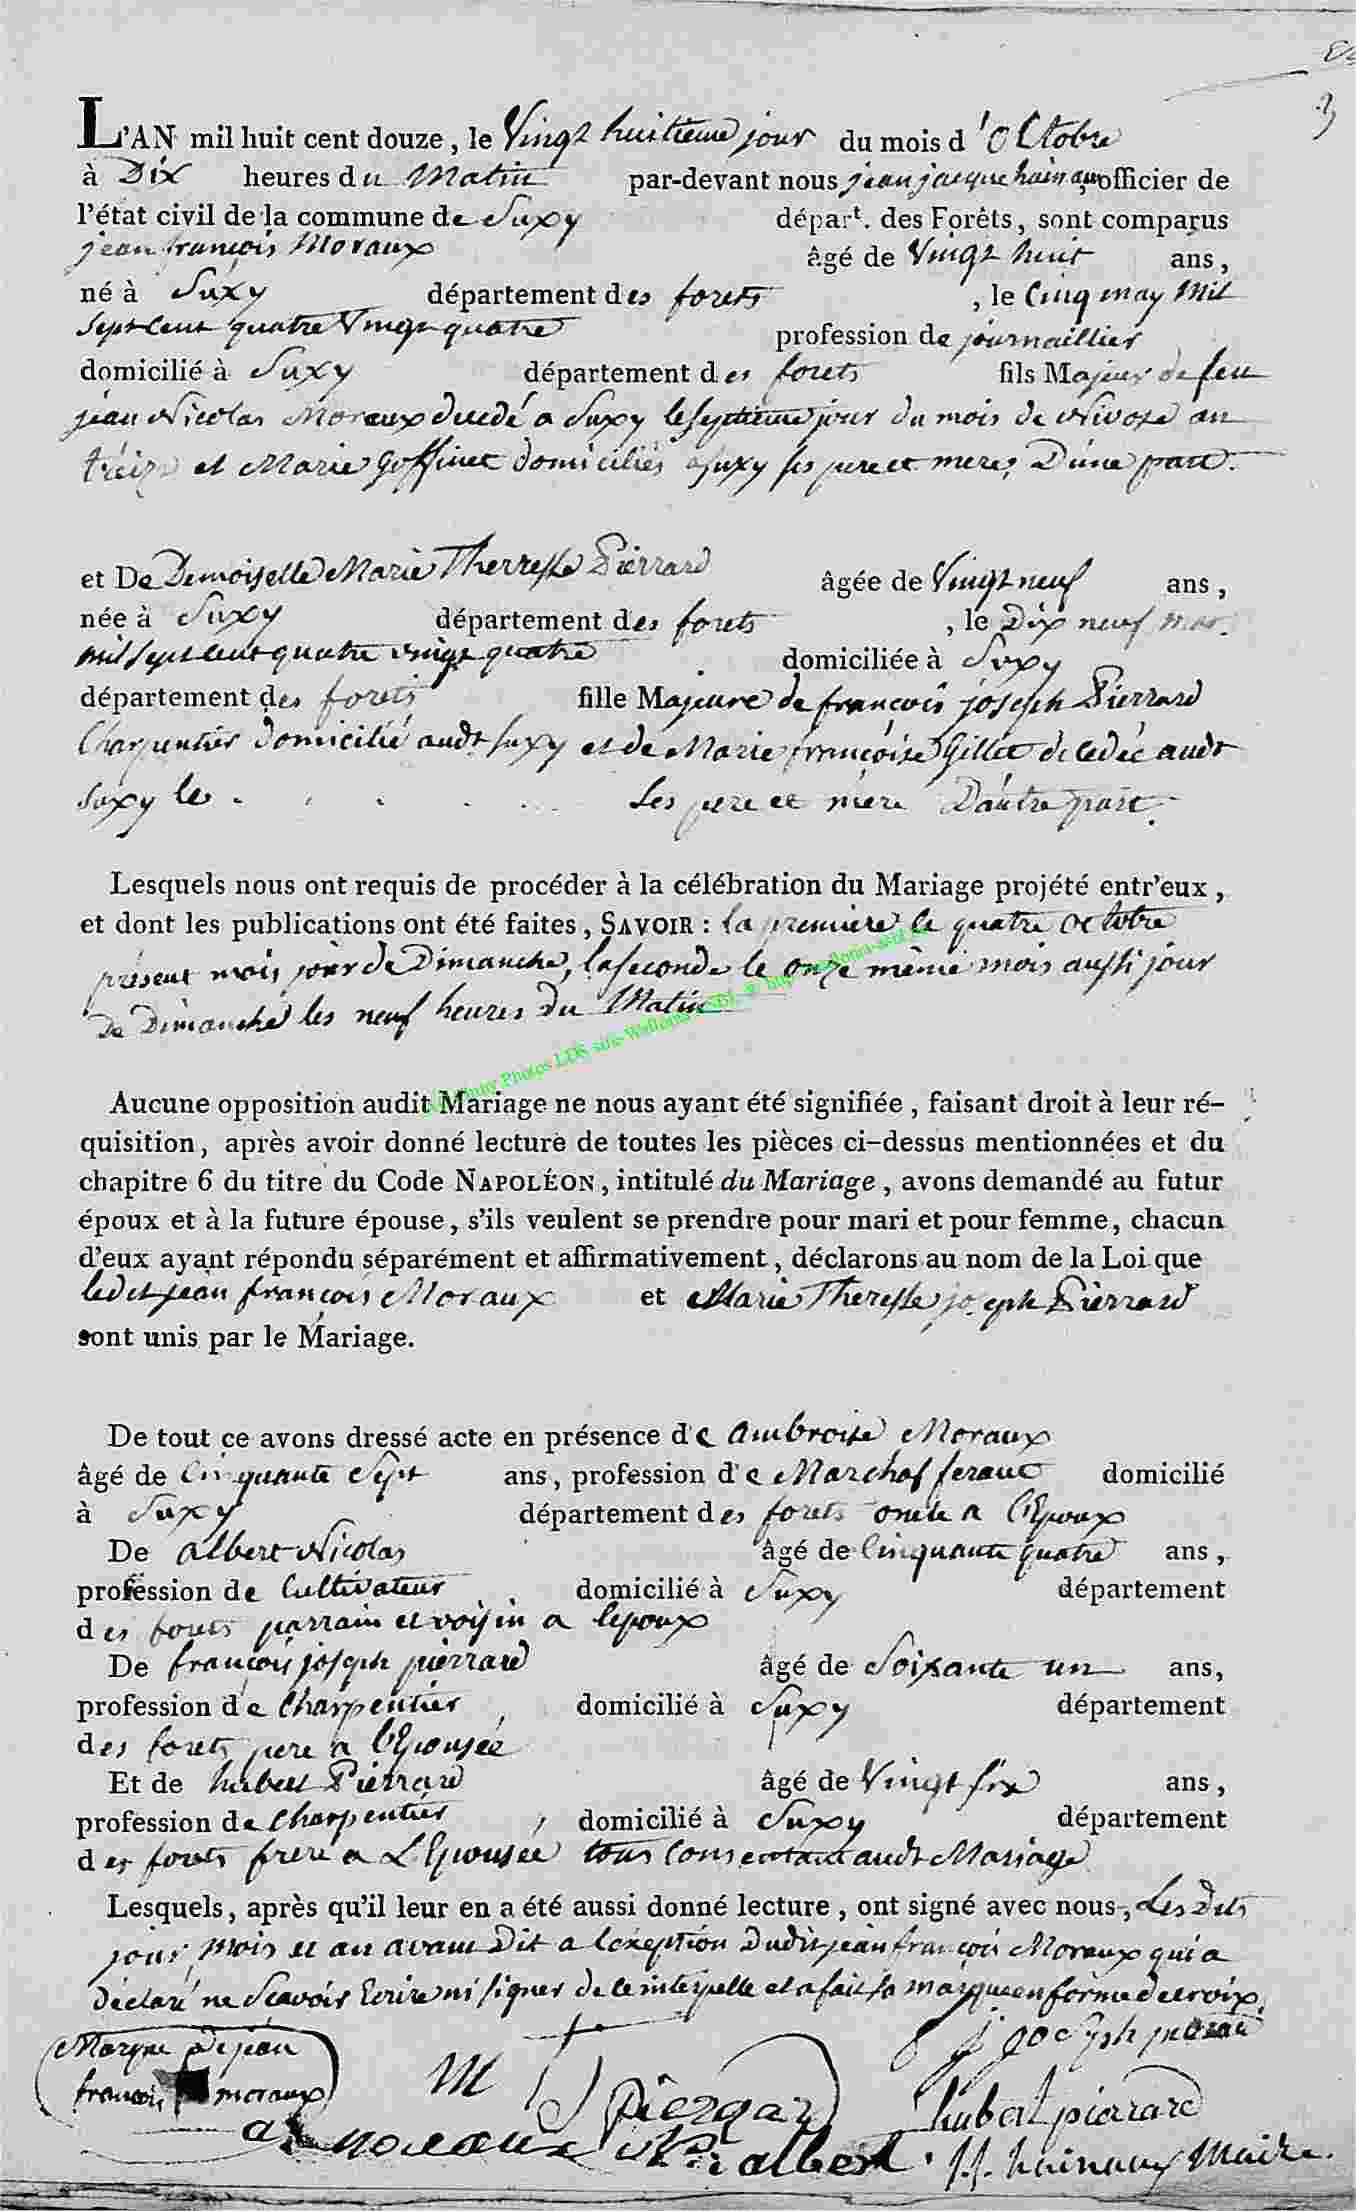 3
L'AN mil huit cent douze, le Vingt huitieme jour du mois d'Octobre
à Dix heures du Matin par-devant nous jean jacque officier de
l'état civil de la commune de Suxy départ. des Forêts, sont comparus
jean françois Moraux âgé de Vingt huit ans,
né à Suxy département des forets, le Cinq may Mil
Sept Cent quatre Vingt quatre profession de journaillier
domicilié à Suxy département des forets fils Majeur de feu
jean Nicolas Moraux decedé a Suxy le septieme jour du mois de Nivose an
treize et Marie Goffinet domiciliés a suxy ses pere et mere, D'une part.
et De Demoiselle Marie Therresse Pierrard âgée de Vingt neuf ans,
née à Suxy département des forets, le Dix neuf
mil sept cent quatre vingt quatre domiciliée à Suxy
département des forets fille Majeure de françois joseph Pierrard
Charpentier domicilié audt suxy et de Marie françoise Gillet decedée audt
Suxy le . . . . . . Ses pere et mere D'autre part.
Lesquels nous ont requis de procéder à la célébration du Mariage projété entr'eux,
et dont les publications ont été faites, SAVOIR : la premiere le quatre octobre
présent mois jour de Dimanche, la seconde le onze même mois aussi jour
de Dimanche les neuf heures du Matin
Photos LDS site Wallonia ASBL © http://
Aucune opposition audit Mariage ne nous ayant été signifiée, faisant droit à leur ré-
quisition, après avoir donné lecture de toutes les pièces ci-dessus mentionnées et du
chapitre 6 du titre du Code NAPOLÉON, intitulé du Mariage, avons demandé au futur
époux et à la future épouse, s'ils veulent se prendre pour mari et pour femme, chacun
d'eux ayant répondu séparément et affirmativement, déclarons au nom de la Loi que
ledit jean françois Moraux et Marie Theresse joseph Pierrard
sont unis par le Mariage.
De tout ce avons dressé acte en présence de Ambroise Moraux
âgé de Cinquante Sept ans, profession de Marchal ferant domicilié
à Suxy département des forets oncle a l'Epoux
De albert Nicolas âgé de Cinquante quatre ans,
profession de Cultivateur domicilié à Suxy département
des forets parrain et voisin a lepoux
De françois joseph pierrard âgé de Soixante un ans,
profession de Charpentier, domicilié à Suxy département
des forets pere a l'Epousée
Et de hubert Pierrard âgé de Vingt six ans,
profession de Charpentier, domicilié à Suxy département
des forets frere a L'Epousée tous Consentant audt Mariage
Lesquels, après qu'il leur en a été aussi donné lecture, ont signé avec nous, Les Dits
jour, mois et an avant Dit a l'exeption Dudit jean françois Moraux qui a
déclaré ne Scavoir Ecrire ni signer de ce interpelle et a fait sa marque en forme de croix,
Marque De jean
françois moraux
hubert pierrard
moraux albert
Maire.